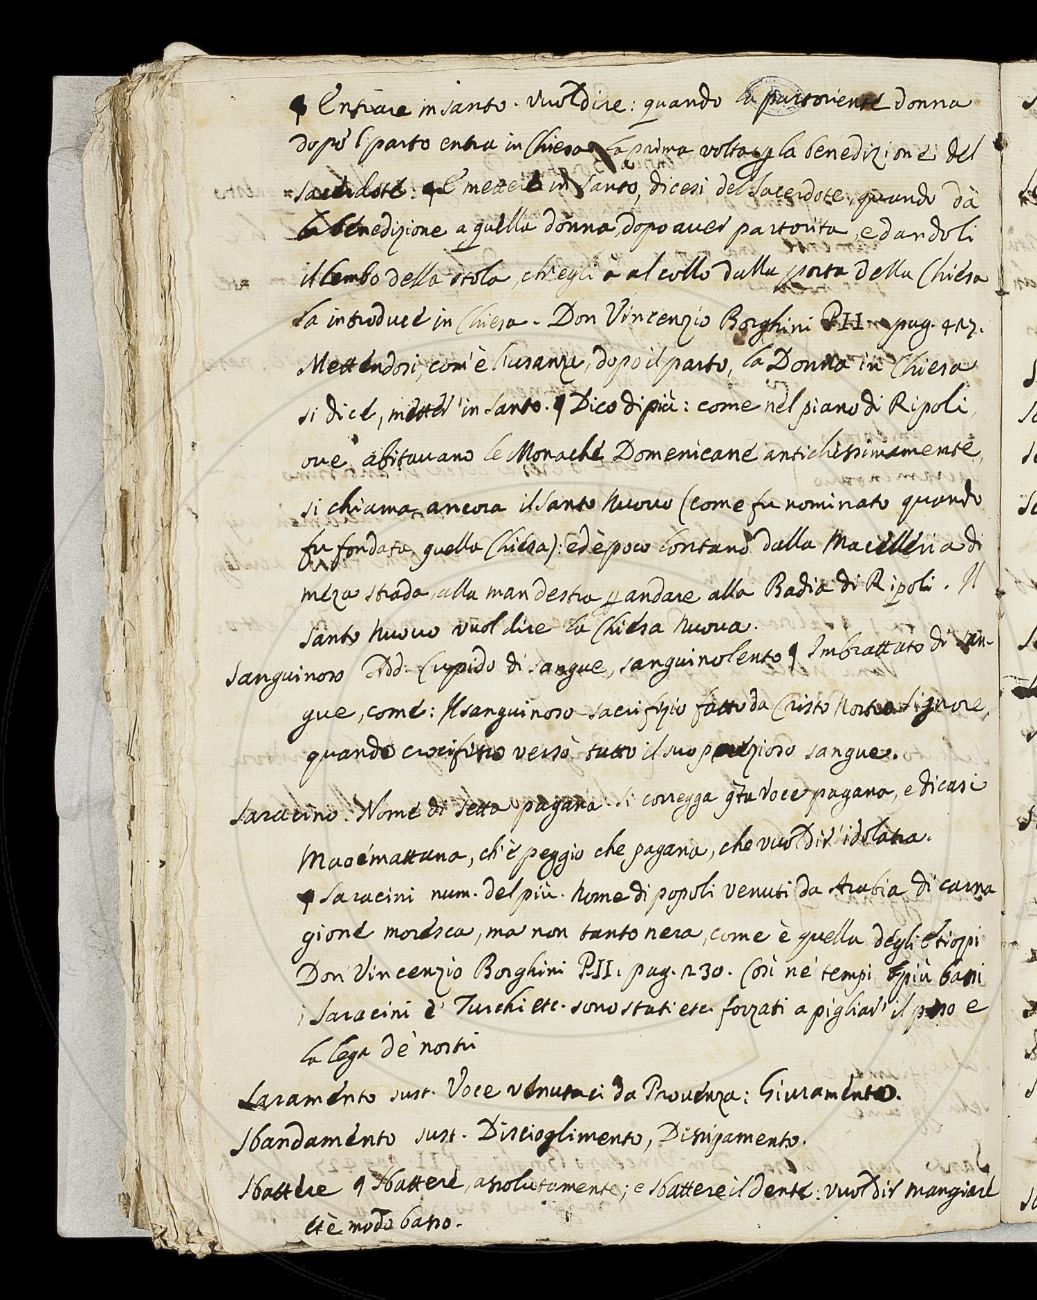 ¶ Entrare in santo. vuol dire: quando la partoriente donna
dopo 'l parto entra in Chiesa la prima volta p la benedizione del
sacerdote: ¶ E mettere in santo, dicesi del sacerdote, quando dà
la benedizione a quella donna, dopo aver partorito, e dandoli
il lembo della stola, ch'egli à al collo dalla porta della Chiesa
la introduce in Chiesa. Don Vincenzio Borghini P.II. pag. 417.
Mettendosi, com'è l'usanza, dopo il parto, la Donna in Chiesa
si dice, metter in santo. ¶ Dico di più: come nel piano di Ripoli,
ove abitavano le Monache Domenicane antichissimamente,
si chiama ancora il santo nuovo (come fu nominato quando
fu fondata quella Chiesa): ed è poco lontano dalla Macelleria di
meza strada, alla man destra p andare alla Badia di Ripoli. Il
santo nuovo vuol dire la Chiesa nuova.
Sanguinoso Add. Cupido di sangue, sanguinolento ¶ Imbrattato di san-
gue, come: Il sanguinoso sacrifizio fatto da Cristo nostro signore,
quando crocifisso versò tutto il suo prezioso sangue.
Saracino. Nome di setta pagana. si corregga q̃ta voce pagana, e dicasi
Maoemattana, ch'è peggio che pagana, che vuol dir' idolatra.
¶ Saracini num. del più. nome di popoli venuti da Arabia di carna
gione moresca, ma non tanto nera, come è quella degli Etiopi
Don Vincenzio Borghini P.II. pag. 230. Così ne' tempi più bassi
i Saracini e' Turchi etc. sono stati etc. forzati a pigliar' il peso e
la lega de' nostri
Saramento sust. Voce venutaci da Provenza: Giuramento.
Sbandamento sust. Discioglimento, Disunamento.
Sbattere ¶ Sbattere, assolutamente; e sbattere il dente: vuol dir mangiare
et è modo basso.